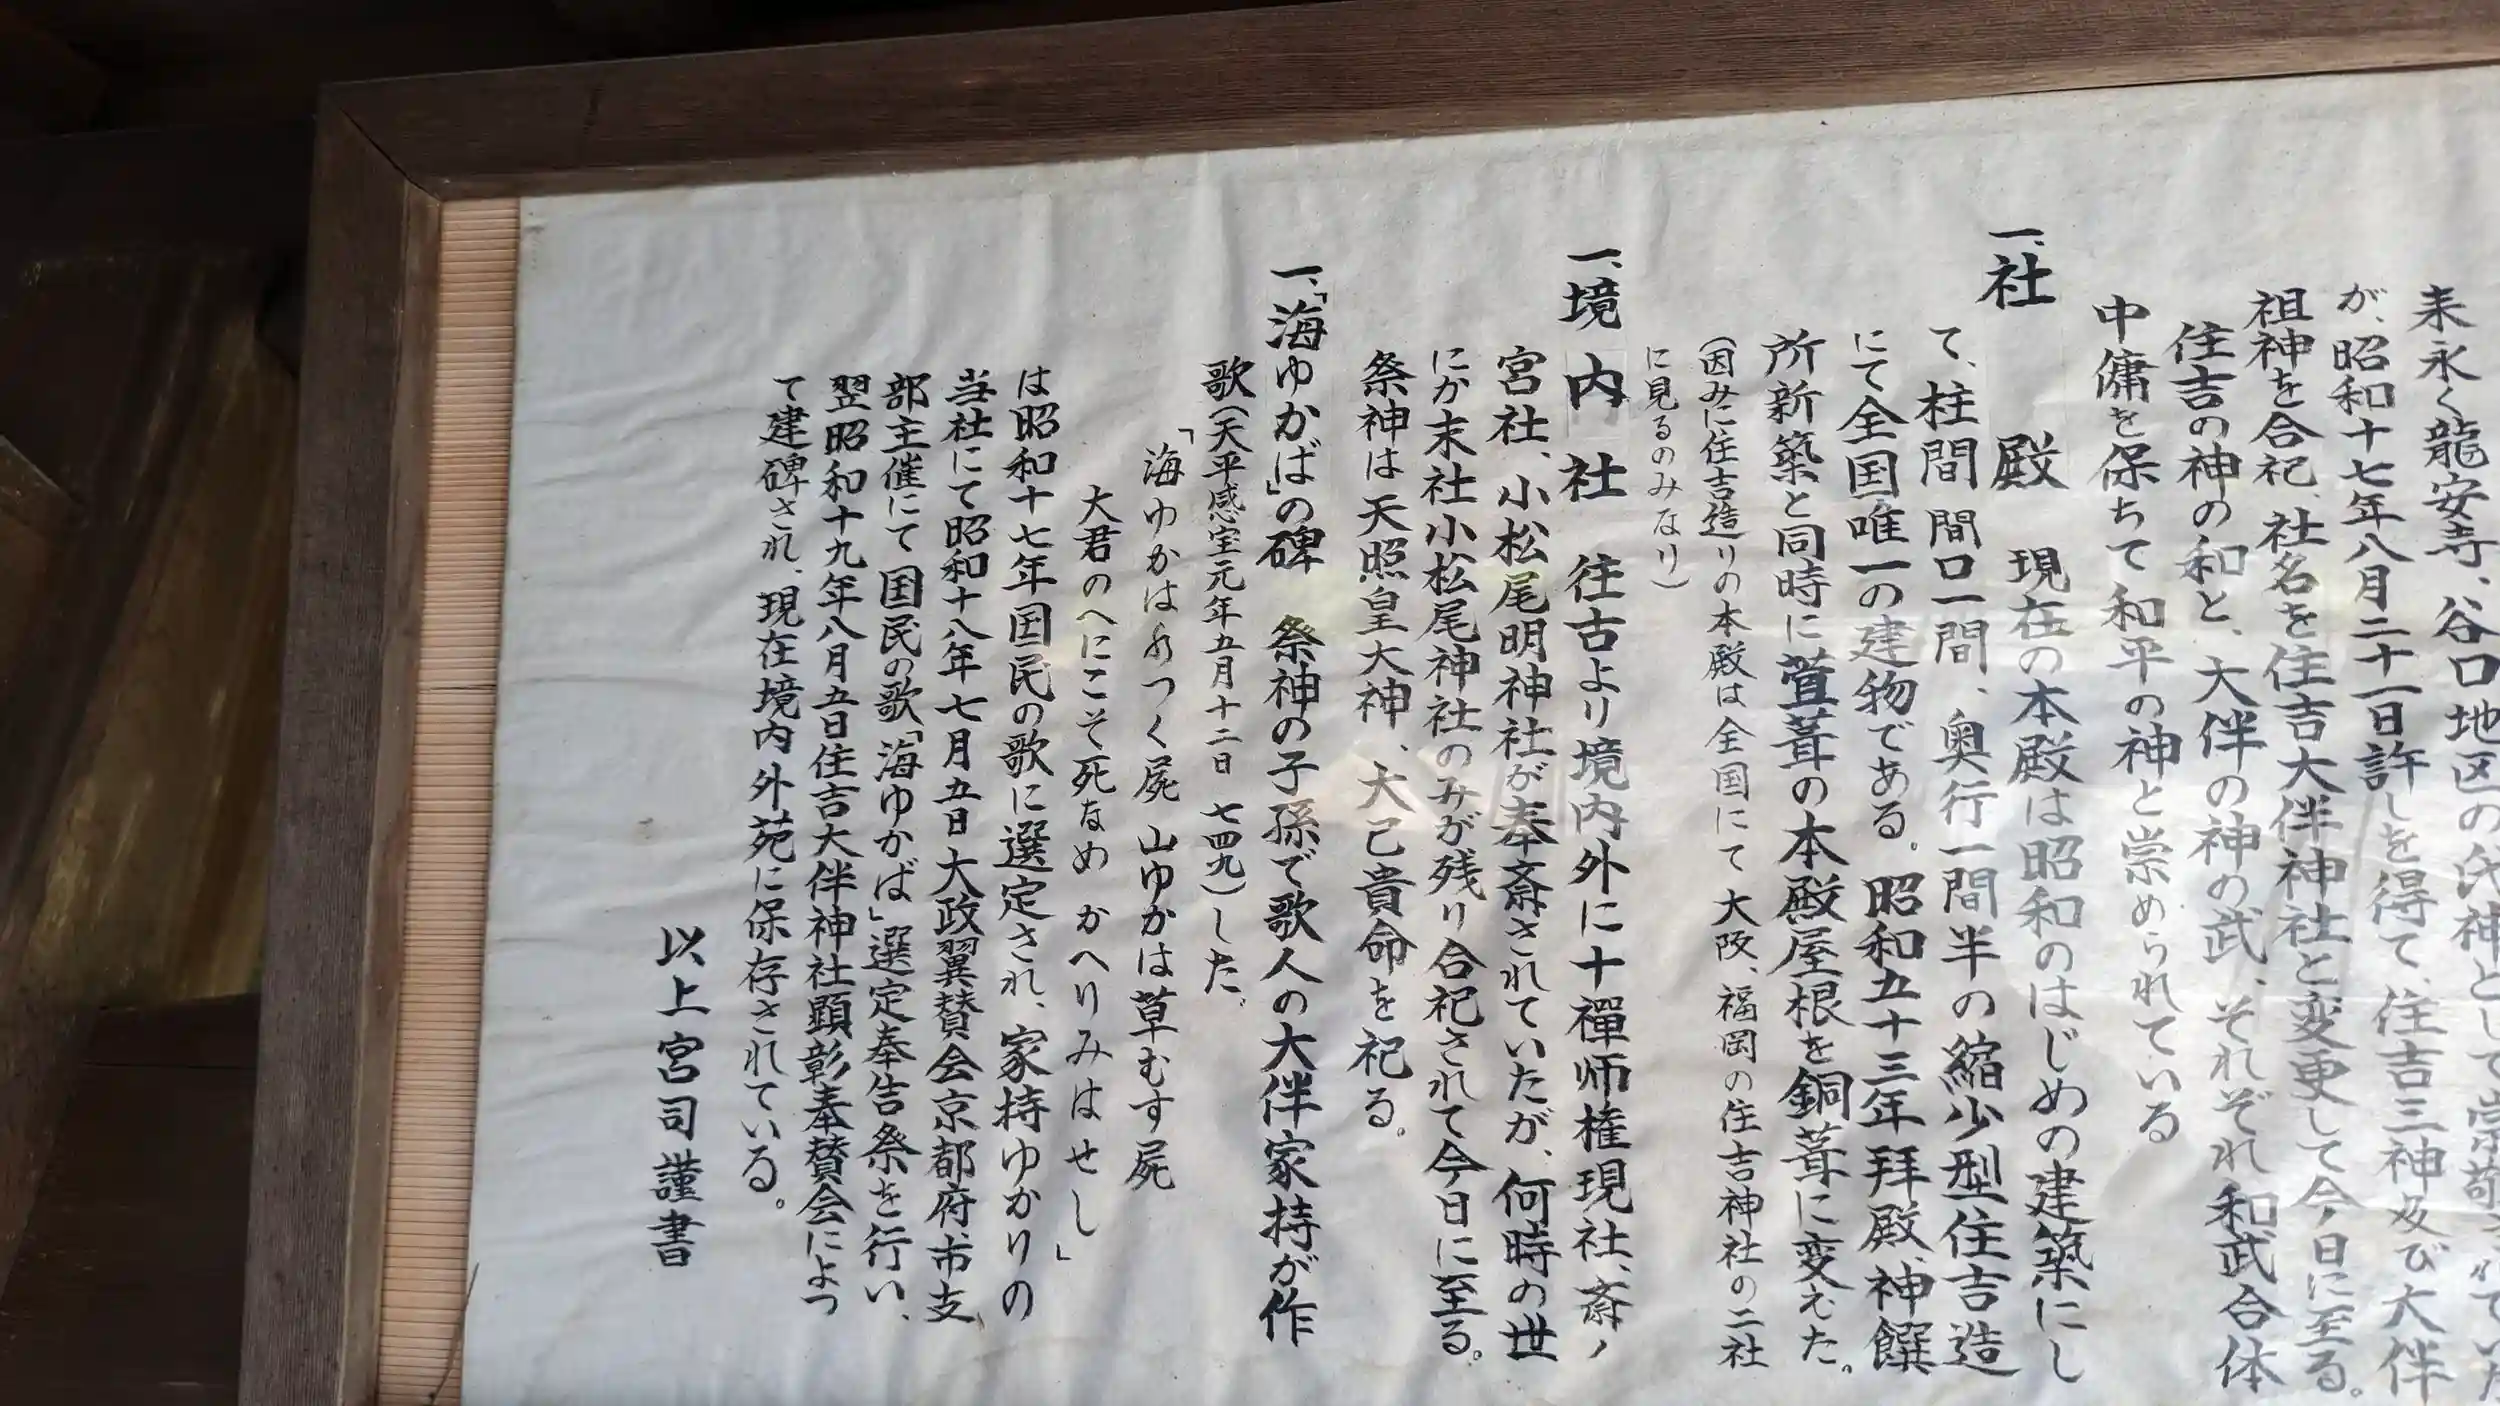 来永く龍安寺、谷口地区の氏神として崇敬されていた
が、昭和十七年八月二十一日許しを得て、住吉三神及び大伴
祖神を合祀、社名を住吉大伴神社と変更して今日に至る。
住吉の神の和と、大伴の神の武、それぞれ和武合体
中庸を保ちて和平の神と崇められている
一、社殿 現在の本殿は昭和のはじめの建築にし
て、柱間間口一間、奥行一間半の縮少型住吉造
にて全国唯一の建物である。昭和五十三年拝殿、神饌
所新築と同時に萱葺の本殿屋根を銅葺に変えた。
(因みに住吉造りの本殿は全国にて大阪、福岡の住吉神社の二社
に見るのみなり)
一、境内社 往古より境内外に十禅师権現社、斎ノ
宮社、小松尾明神社が奉斎されていたが、何時の世
にか末社小松尾神社のみが残り合祀されて今日に至る。
祭神は天照皇大神、大己貴命を祀る。
一、「海ゆかば」の碑 祭神の子孫で歌人の大伴家持が作
歌(天平感宝元年五月十二日 七四九)した、
「海ゆかはみつく屍 山ゆかは草むす屍
大君のへにこそ死なめ かへりみはせし」
は昭和十七年国民の歌に選定され、家持ゆかりの
当社にて昭和十八年七月五日大政翼賛会京都府市支
部主催にて国民の歌「海ゆかば」選定奉告祭を行い、
翌昭和十九年八月五日住吉大伴神社顕彰奉賛会によつ
て建碑され、現在境内外苑に保存されている。
以上 宮司謹書